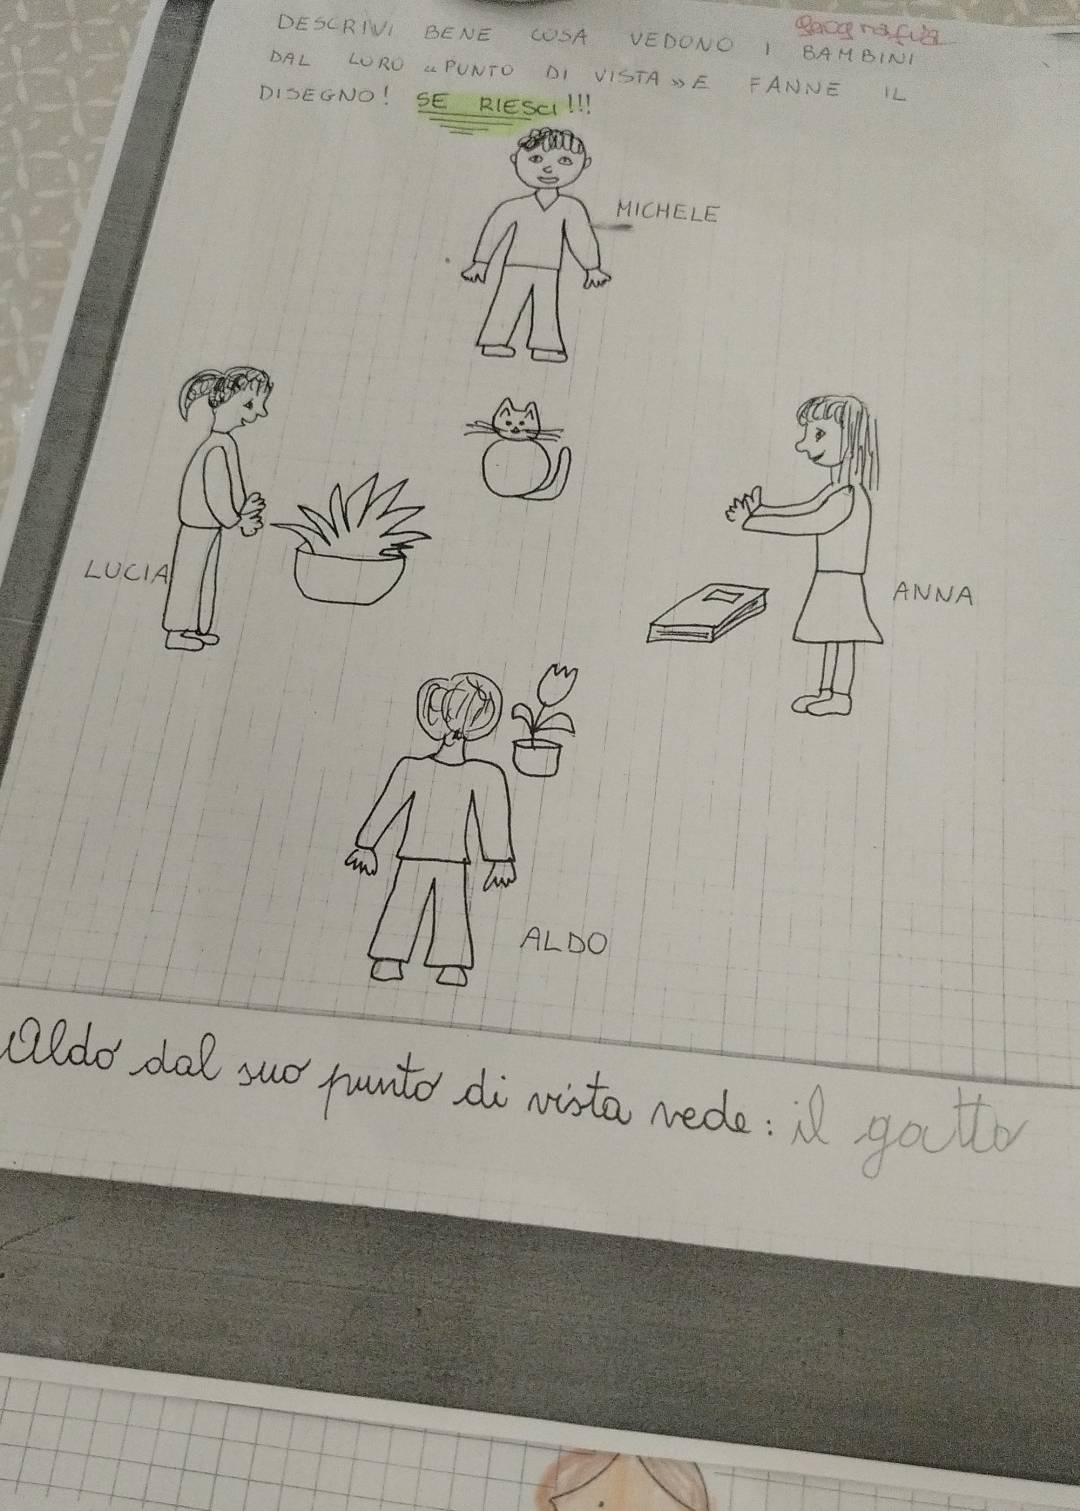 Geografia
DESCRIVI BENE COSA VEDONO I BAMBINI
DAL LORO "PUNTO DI VISTA" E FANNE IL
DISEGNO! SE RIESCI!!!
MICHELE
LUCIA
ANNA
ALDO
Aldo dal suo punto di vista vede: il gatto